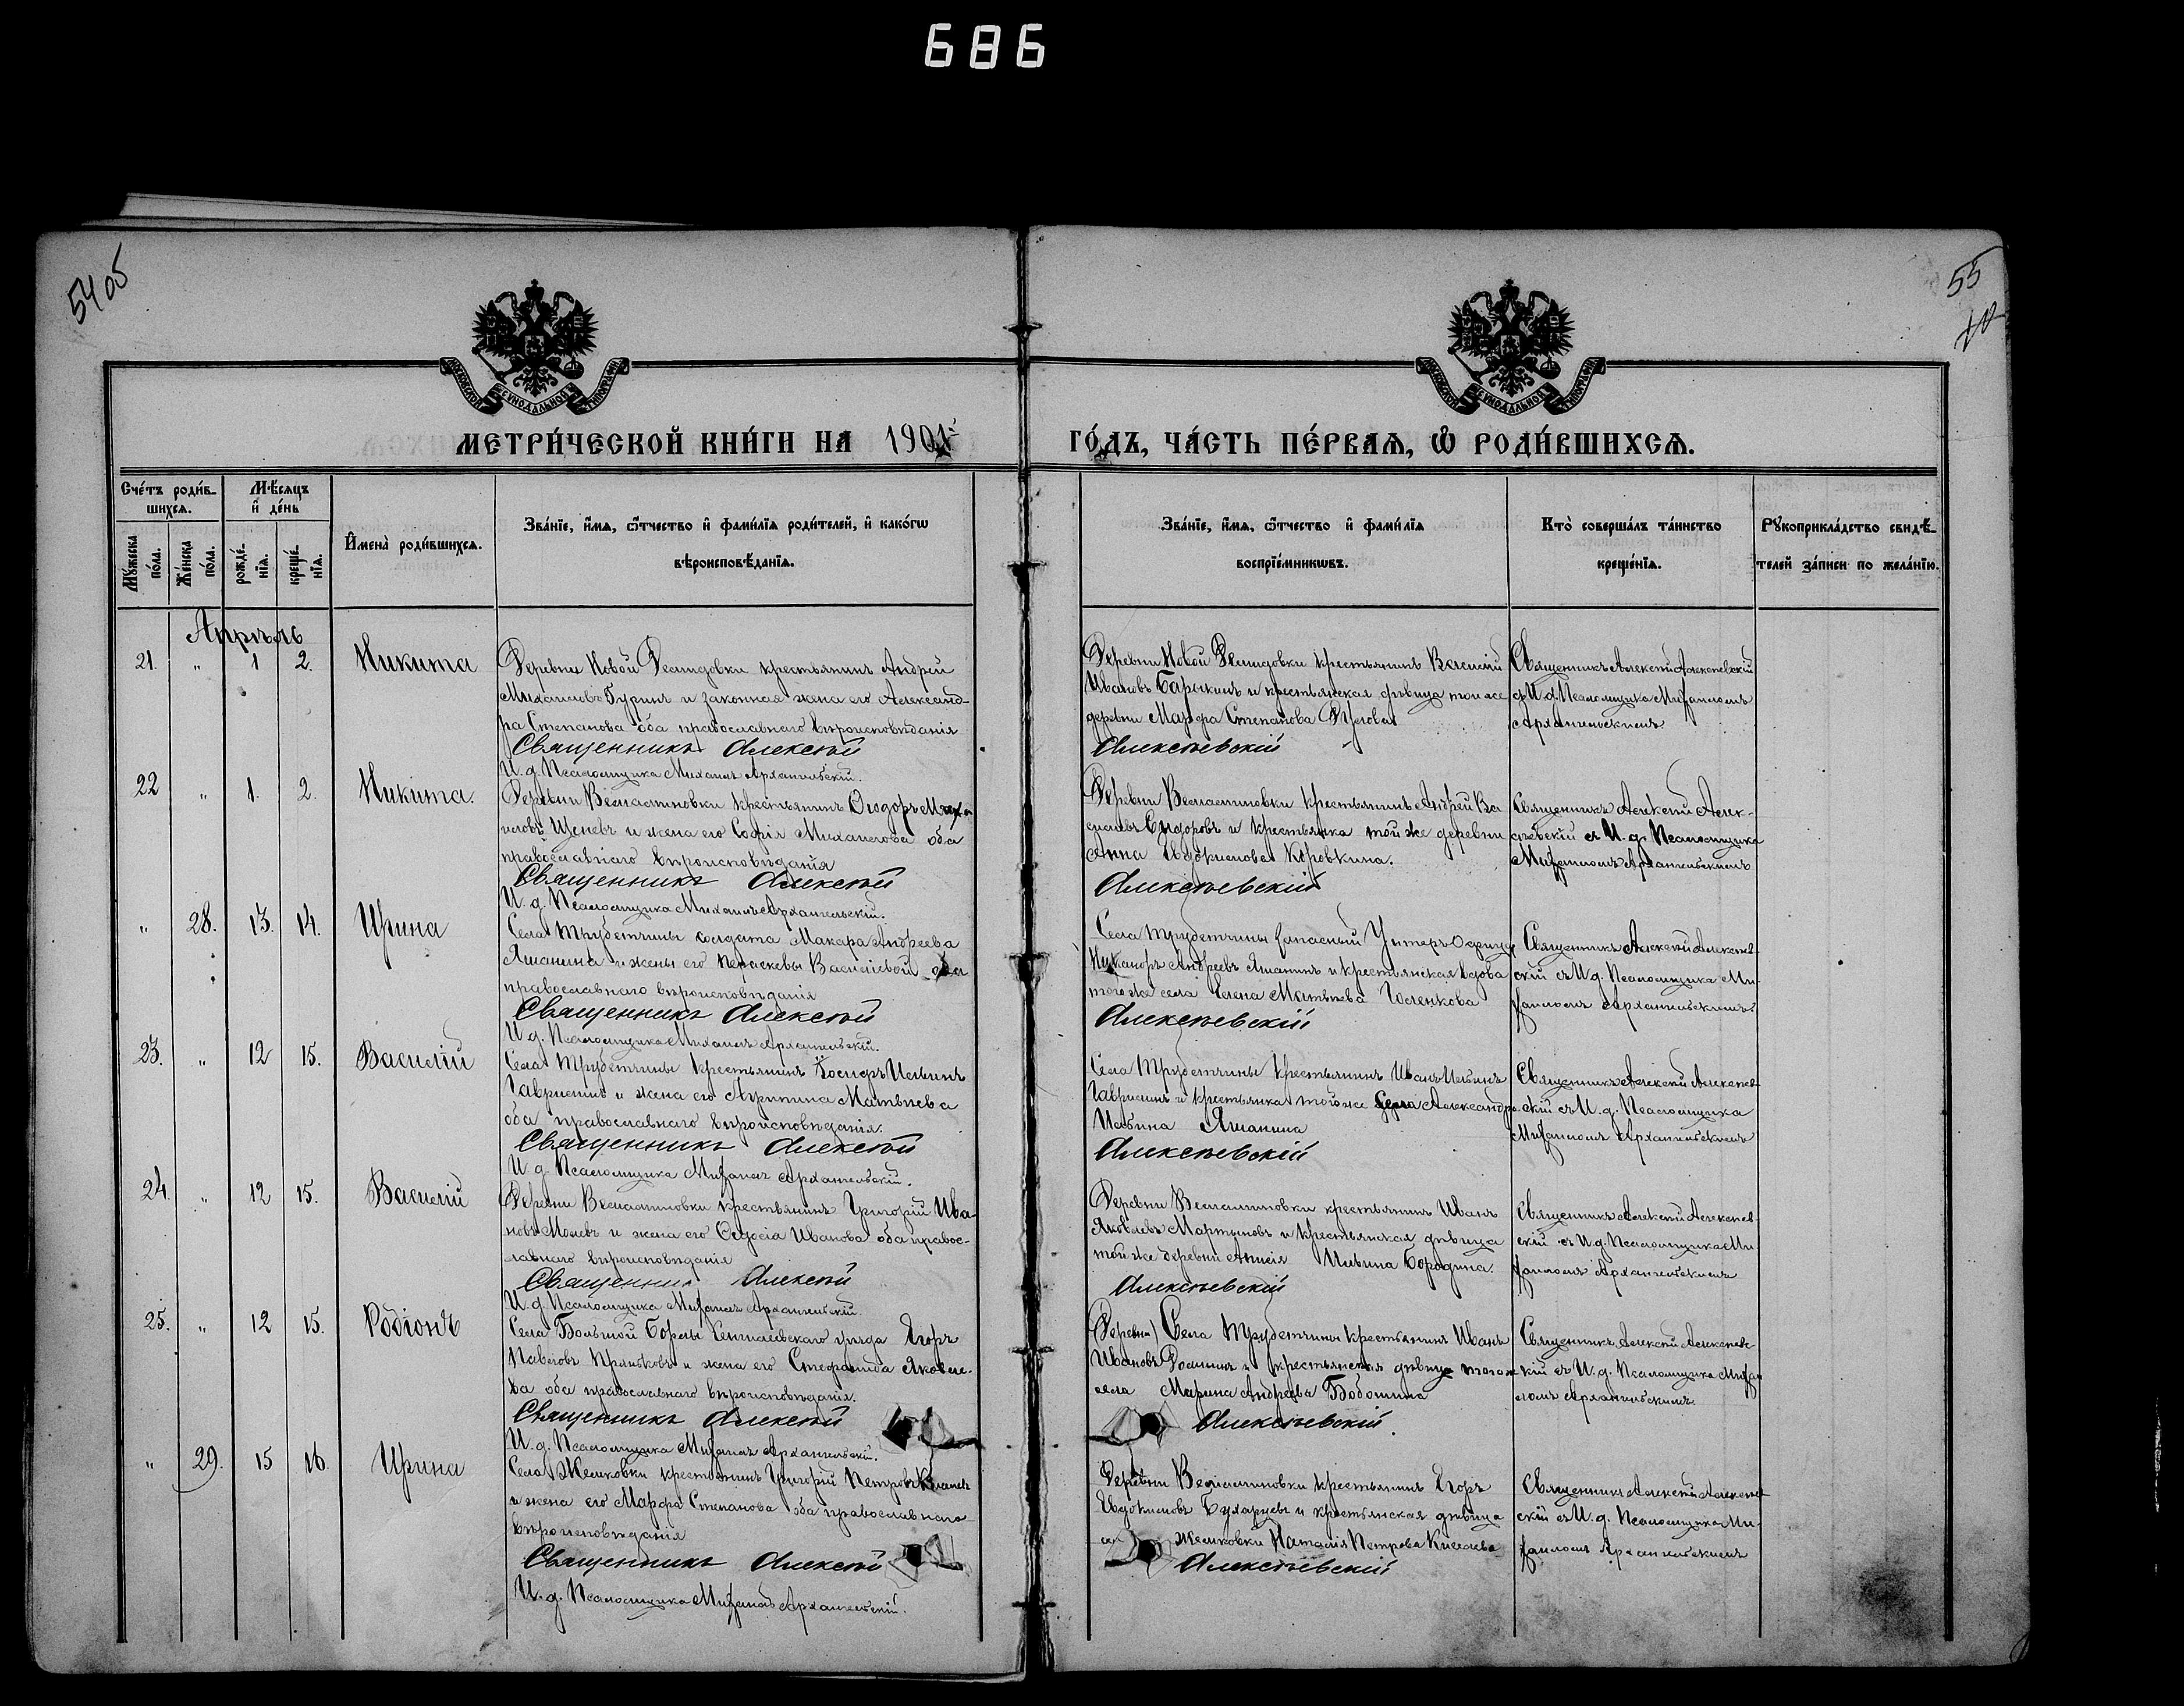 686
54об
55
МЕТРИ́ЧЕСКОЙ КНИ́ГИ НА 1901й
ГО́ДЪ, ЧА́СТЬ ПЕ́РВАѦ, Ѡ РОДИ́ВШИХСѦ.
Сче́тъ роди́в-
шихсѧ.
Мѣ́сѧцъ
и де́нь
Мꙋ́жеска
по́ла.
Же́нска
по́ла.
рожде́-
нїѧ.
креще́-
нїѧ.
И҆мена̀ роди́вшихсѧ.
Зва́нїе, и҆́мѧ, ѻ҆́тчество и҆ фами́лїѧ роди́телей, и҆ како́гѡ
вѣроисповѣ́данїѧ.
Зва́нїе, и҆́мѧ, ѻ҆́тчество и҆ фами́лїѧ
воспрїе́мникѡвъ.
Кто̀ соверша́лъ та́инство
креще́нїѧ.
Рꙋкоприкла́дство свидѣ́-
телей за́писи по жела́нїю.
Апрѣль
21. " 1 2. Никита
Деревни Новой Демидовки крестьянинъ Андрей
Михаиловъ Гуринъ и законная жена его Александ-
ра Степанова оба православнаго вѣроисповѣданія
Священникъ Алексѣй
И. д. Псаломщика Михаилъ Архангельскій.
Деревни Новой Демидовки крестьянинъ Василій
Ивановъ Барыкинъ и крестьянская дѣвица той же
деревни Марфа Степанова
Алексѣевскій
Священникъ Алексѣй Алексѣевскій
съ И. д. Псаломщика Михаиломъ
Архангельскимъ
22 " 1. 2. Никита.
Деревни Веліаминовки крестьянинъ Ѳеодоръ Миха-
иловъ Щеневъ и жена его Софія Михаилова оба
православнаго вѣроисповѣданія
Священникъ Алексѣй
И. д. Псаломщика Михаилъ Архангельскій.
Деревни Веліаминовки крестьянинъ Андрей Ва-
сильевъ Сидоровъ и крестьянка той же деревни
Анна Евдокимова Коровкина.
Алексѣевскій
Священникъ Алексѣй Алек-
сѣевскій съ И. д. Псаломщика
Михаиломъ Архангельскимъ
" 28. 13. 14. Ирина
Села Трубетчины солдата Макара Андреева
Яшанина и жены его Параскевы Васильевой оба
православнаго вѣроисповѣданія
Священникъ Алексѣй
И. д. Псаломщика Михаилъ Архангельскій.
Села Трубетчины запасный Унтеръ Офицеръ
Никаноръ Андреевъ Яшанинъ и крестьянская вдова
того же села Елена Матвѣева Голенкова
Алексѣевскій
Священникъ Алексѣй Алексѣев-
скій съ И. д. Псаломщика Ми-
хаиломъ Архангельскимъ
23. " 12 15. Василій
Села Трубетчины крестьянинъ Космеръ Ильинъ
Гавришинъ и жена его Агрипина Матвѣева
оба православнаго вѣроисповѣданія.
Священникъ Алексѣй
И. д. Псаломщика Михаилъ Архангельскій.
Села Трубетчины крестьянинъ Иванъ Ильинъ
Гавришинъ и крестьянка того же Села Александра
Ильина Яшанина
Алексѣевскій
Священникъ Алексѣй Алексѣев-
скій съ И. д. Псаломщика
Михаиломъ Архангельскимъ
24. " 12 15. Василій
Деревни Веліаминовки крестьянинъ Григорій Ива-
новъ Молевъ и жена его Ѳедосія Иванова оба правос-
лавнаго вѣроисповѣданія
Священникъ Алексѣй
И. д. Псаломщика Михаилъ Архангельскій.
Деревни Веліаминовки крестьянинъ Иванъ
Яковлевъ Мартыновъ и крестьянская дѣвица
той же деревни Анисія Ильина Бородина.
Алексѣевскій
Священникъ Алексѣй Алексѣев-
скій съ И. д. Псаломщика Ми-
хаиломъ Архангельскимъ
25. " 12 15. Родіонъ
Села Большой Борлы уѣзда Егоръ
Павловъ Пряшковъ и жена его Стефанида Яковле-
ва оба православнаго вѣроисповѣданія.
Священникъ Алексѣй
И. д. Псаломщика Михаилъ Архангельскій.
(Деревни) Села Трубетчины крестьянинъ Иванъ
Ивановъ Роминъ и крестьянская дѣвица тогоже
села Марина Андреева Бобошина
Алексѣевскій.
Священникъ Алексѣй Алексѣев-
скій съ И. д. Псаломщика Михаи-
ломъ Архангельскимъ.
" 29. 15 16 Ирина
Села Желиховки крестьянинъ Григорій Петровъ
и жена его Марфа Степанова оба православнаго
вѣроисповѣданія
Священникъ Алексѣй
И. д. Псаломщика Михаилъ Архангельскій.
Деревни Веліаминовки крестьянинъ Егоръ
Евдокимовъ Бухарцевъ и крестьянская дѣвица
Желиховки Наталія Петрова Киселева
Алексѣевскій
Священникъ Алексѣй Алексѣев-
скій съ И. д. Псаломщика Ми-
хаиломъ Архангельскимъ